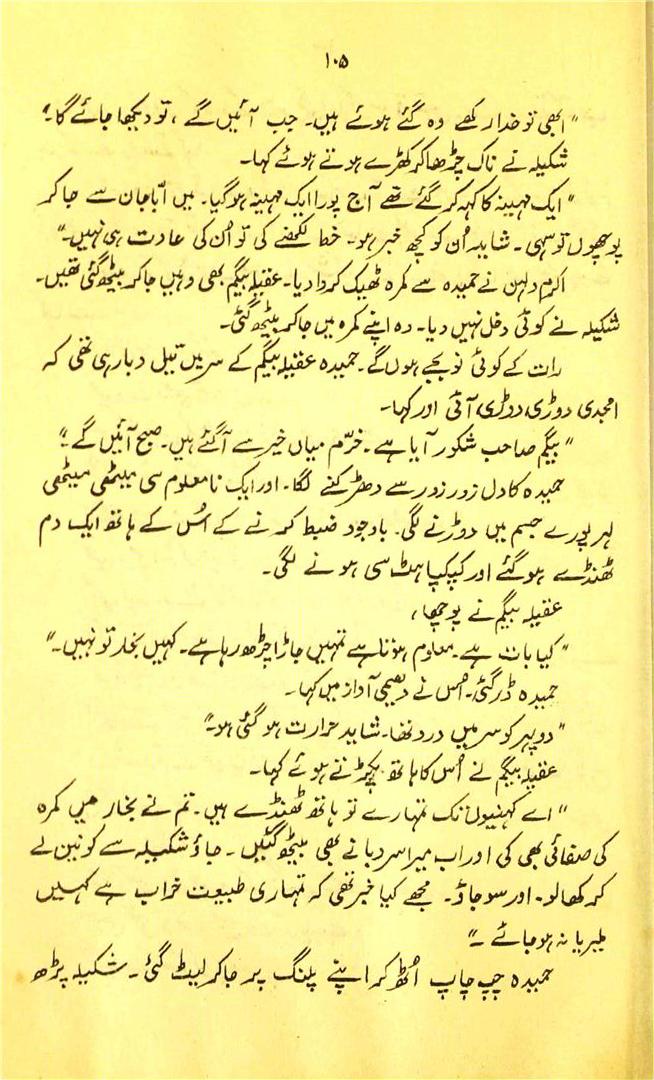 ۱۰۵
"ابھی تو خدا رکھے وہ گئے ہوئے ہیں۔ جب آئیں گے، تو دیکھا جائے گا"
شکیلہ نے ناک چڑھا کر کھڑے ہوتے ہوئے کہا۔
"ایک مہینہ کا کہہ کر گئے تھے آج پورا ایک مہینہ ہوگیا۔ میں ابّا جان سے جا کر
پوچھوں تو سہی۔ شاید اُن کو کچھ خبر ہو۔ خط لکھنے کی تو اُن کی عادت ہی نہیں۔"
اکرم دلہن نے حمیدہ سے کمرہ ٹھیک کروا دیا۔ عقیلہ بیگم بھی وہیں جا کر بیٹھ گئی تھیں۔
شکیلہ نے کوئی دخل نہیں دیا۔ وہ اپنے کمرہ میں جا کر بیٹھ گئی۔
رات کے کوئی نو بجے ہوں گے۔ حمیدہ عقیلہ بیگم کے سر میں تیل دبا رہی تھی کہ
امجدی دوڑی دوڑی آئی اور کہا۔
"بیگم صاحب شکور آیا ہے۔ خرّم میاں خیر سے آ گئے ہیں۔ صبح آئیں گے"
حمیدہ کا دل زور زور سے دھڑکنے لگا۔ اور ایک نامعلوم سی میٹھی میٹھی
لہر پورے جسم میں دوڑنے لگی۔ باوجود ضبط کرنے کے اُس کے ہاتھ ایک دم
ٹھنڈے ہو گئے اور کپکپاہٹ سی ہونے لگی۔
عقیلہ بیگم نے پوچھا،
"کیا بات ہے۔ معلوم ہوتا ہے تمہیں جاڑا چڑھ رہا ہے۔ کہیں بخار تو نہیں۔"
حمیدہ ڈر گئی۔ اُس نے دھیمی آواز میں کہا۔
"دوپہر کو سر میں درد تھا۔ شاید حرارت ہو گئی ہو۔"
عقیلہ بیگم نے اُس کا ہاتھ پکڑتے ہوئے کہا۔
"اے کہنیوں تک تمہارے تو ہاتھ ٹھنڈے ہیں۔ تم نے بخار میں کمرہ
کی صفائی بھی کی اور اب میرا سر دبانے بھی بیٹھ گئیں۔ جاؤ شکیلہ سے کونین لے
کر کھا لو۔ اور سو جاؤ۔ مجھے کیا خبر تھی کہ تمہاری طبیعت خراب ہے کہیں
ملیریا نہ ہو جائے۔"
حمیدہ چپ چاپ اُٹھ کر اپنے پلنگ پر جا کر لیٹ گئی۔ شکیلہ پڑھ